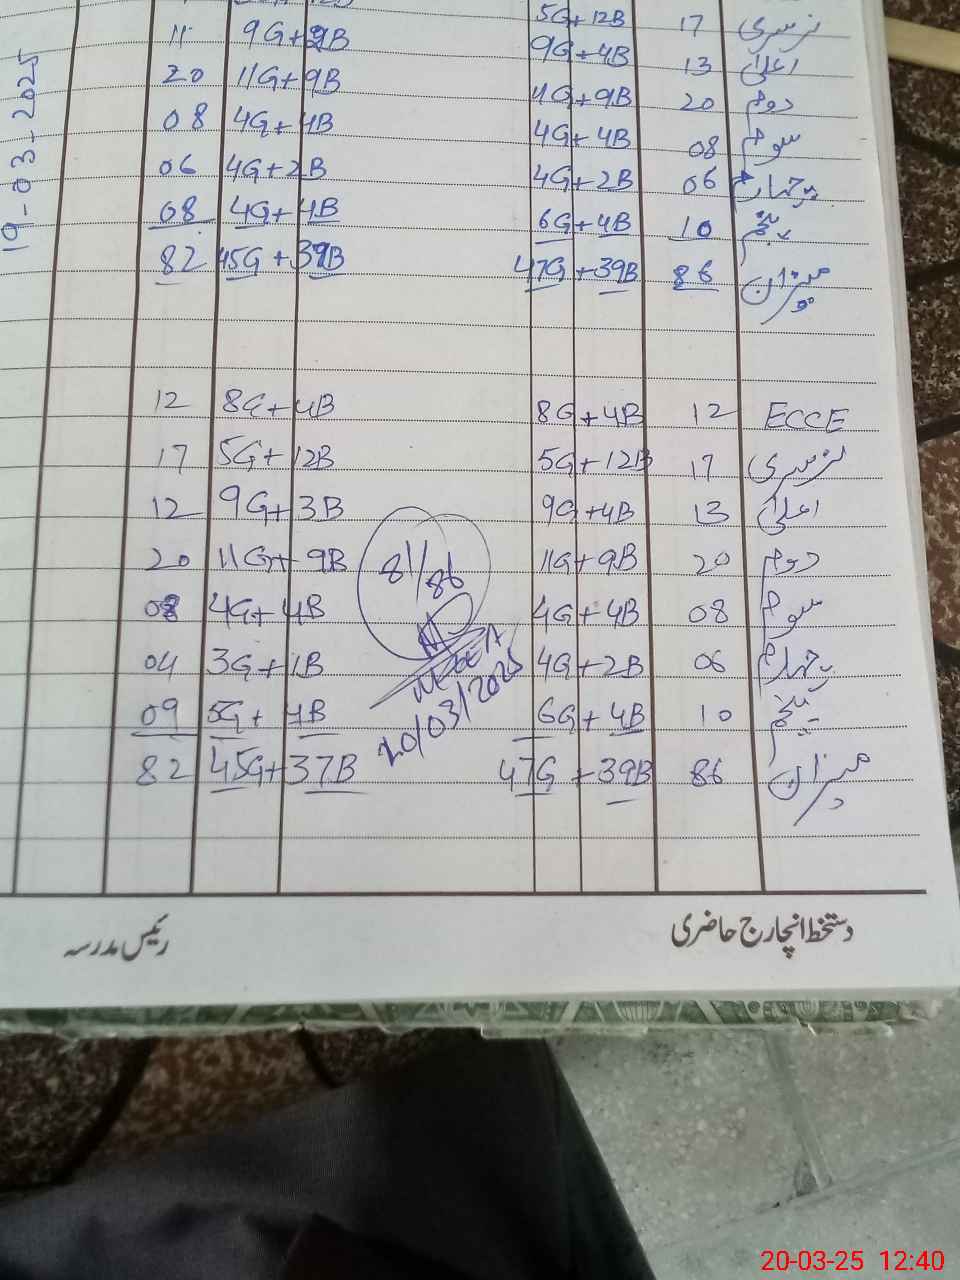 19-03-2025
5G+12B 17 نرسری
11 9G+2B 9G+4B 13 اعلیٰ
20 11G+9B 11G+9B 20 دوم
08 4G+4B 4G+4B 08 سوم
06 4G+2B 4G+2B 06 چہارم
08 4G+4B 6G+4B 10 پنجم
82 45G+39B 47G+39B 86 میزان
12 8G+4B 8G+4B 12 ECCE
17 5G+12B 5G+12B 17 نرسری
12 9G+3B 9G+4B 13 اعلیٰ
20 11G+9B 11G+9B 20 دوم
08 4G+4B 4G+4B 08 سوم
04 3G+1B 4G+2B 06 چہارم
09 5G+4B 6G+4B 10 پنجم
82 45G+37B 47G+39B 86 میزان
81/86
20/03/2025
دستخط انچارج حاضری
رئیس مدرسہ
20-03-25 12:40